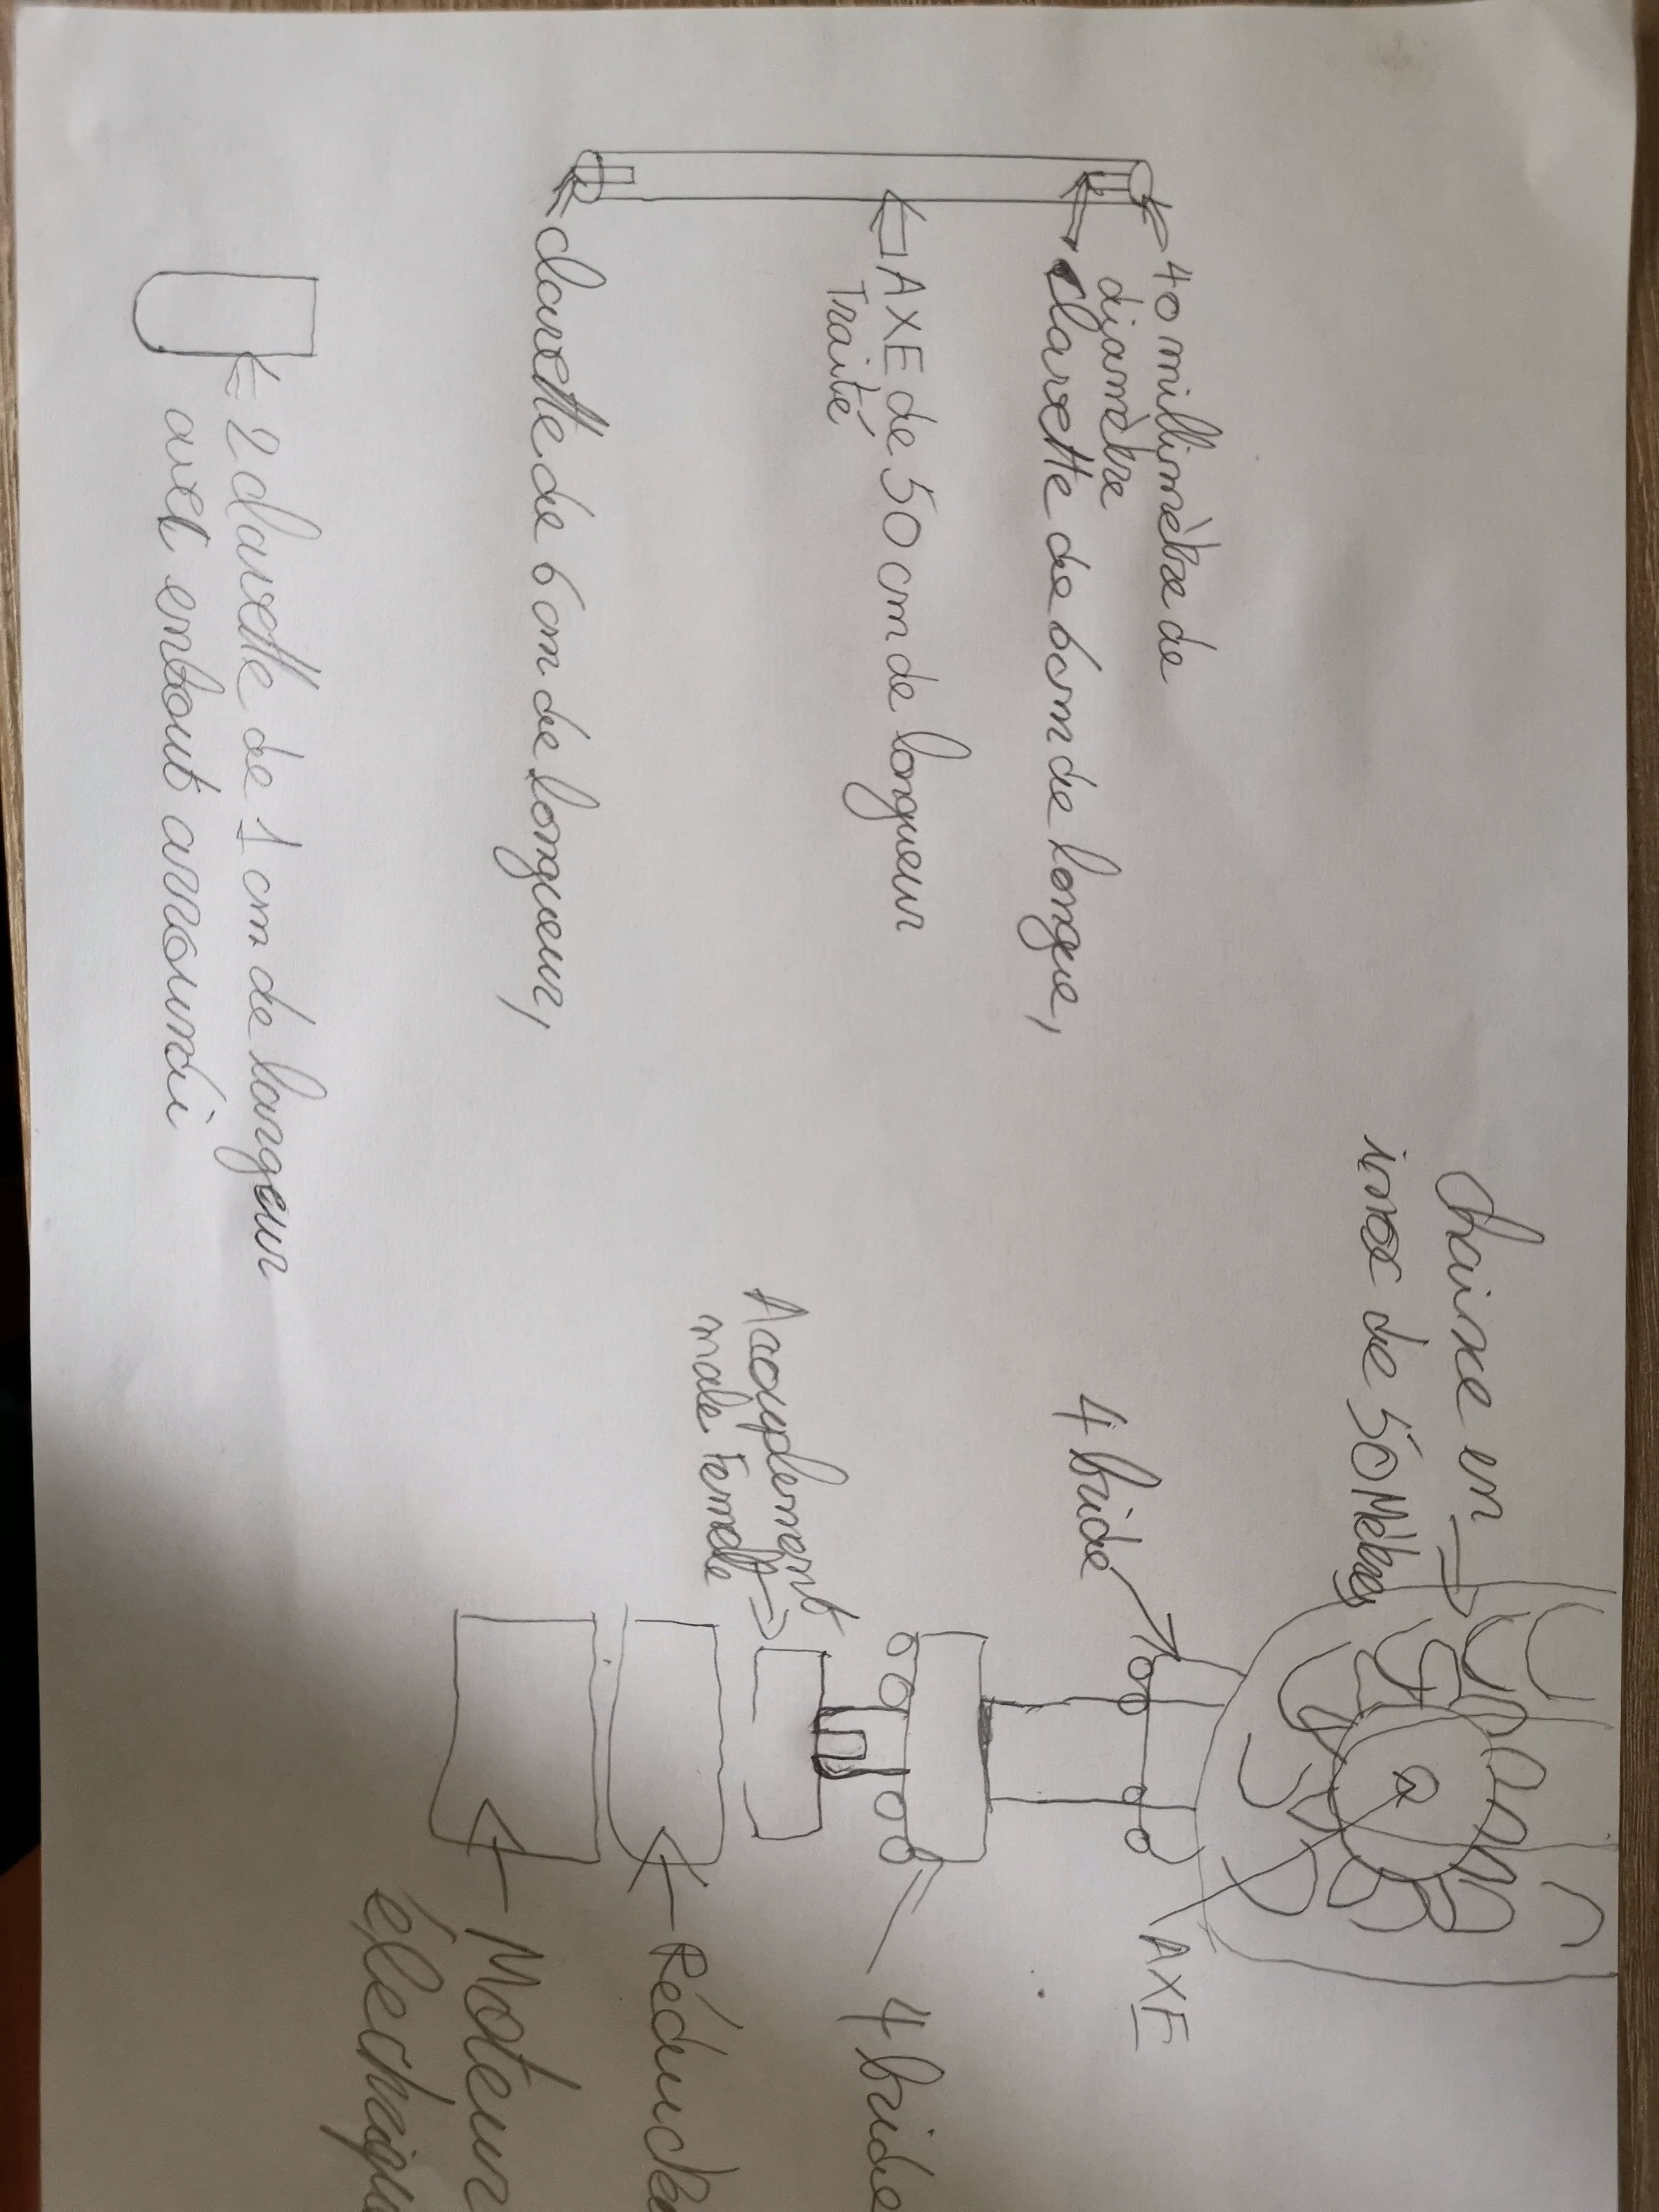 40 millimètre de
diamètre
clavette de 6cm de longue,
AXE de 50 cm de longueur
Traité
clavette de 6 cm de longueur,
2 clavette de 1 cm de largeur
avec embout arroundi
Chaine en
inox de 50 Mètres
4 bride
AXE
Accouplement
male Femelle
4 bride
Réducte
Moteur
électriqu